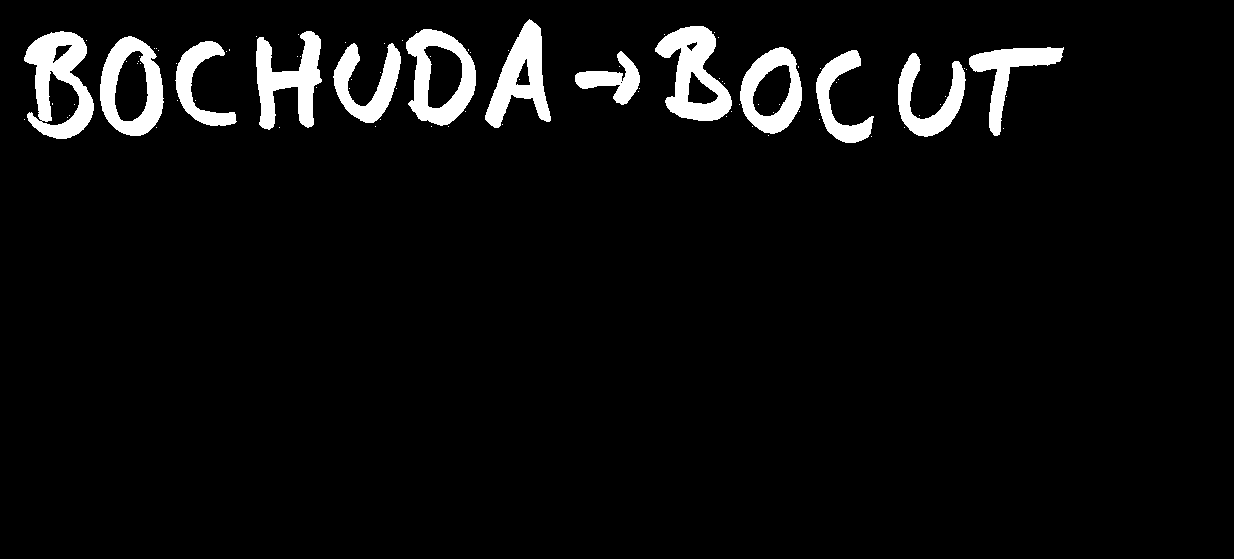 BOCHUDA → BOCUT